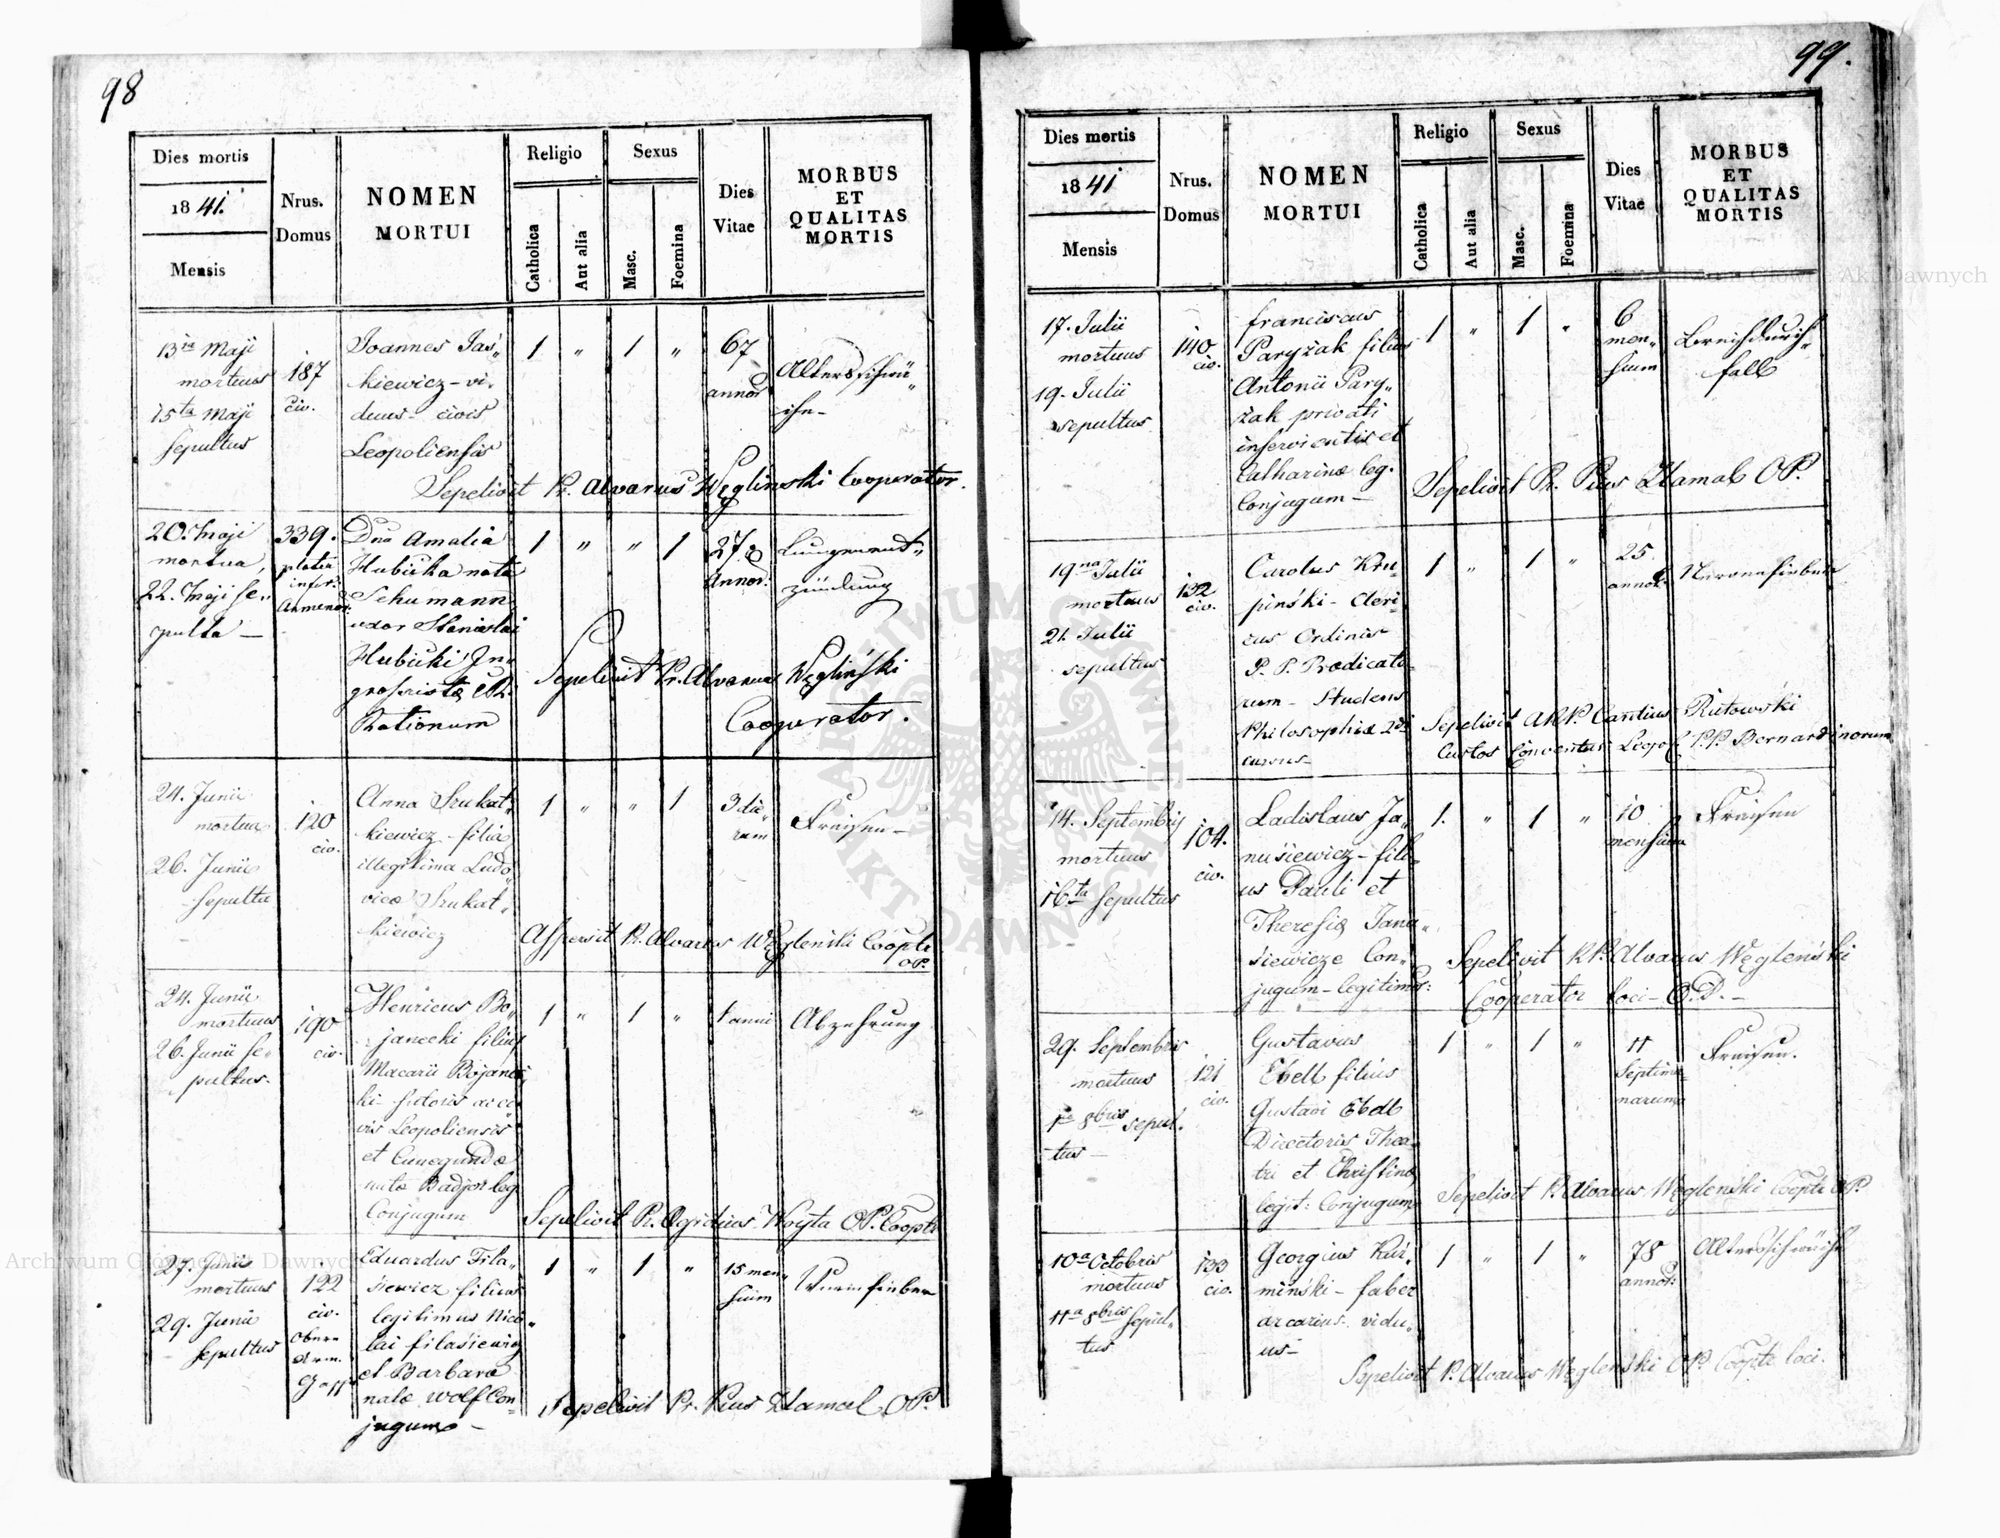 98
Dies mortis
1841.
Mensis
Nrus.
Domus
NOMEN
MORTUI
Religio
Catholica
Aut alia
Sexus
Masc.
Foemina
Dies
Vitae
MORBUS
ET
QUALITAS
MORTIS
13tia Maji
mortuus
15ta Maji
sepultus
187
civ.
Joannes Jaś„
kiewicz - vi„
duus - civis
Leopoliensis
1 „ 1 „
67
annor
Altersschwä„
che -
Sepelivit Pr. Alvarus Węglinski Cooperator.
20. Maji
mortua,
22. Maji se„
pulta —
339.
platea
infer:
Armenor:
Dna Amalia
Hubicka nata
Schumann
uxor Stanislai
Hubicki In„
grossistæ
Rationum
1 „ „ 1
27.
Annor:
Lungenent„
zündung
Sepelivit Pr. Alvarus Węgliński
Cooperator.
24. Junii
mortua
26. Junii
sepulta
120
civ.
Anna Szukat„
kiewicz - filia
illegitima Ludo„
vicæ Szukat„
kiewicz
1 „ „ 1
3 die„
rum
Fraisen —
Aspersit Pr. Alvarus Węglenski Coopte
OP.
24. Junii
mortuus
26. Junii se„
pultus.
190
civ.
Henricus Bo„
janecki filius
Macarii Bojanec„
ki - sutoris ac ci„
vis Leopoliensis
et Cunegundæ
natæ Badjor leg.
Conjugum
1 „ 1 „
1 anni
Abzehrung
Sepelivit Pr. Egidius Woyta OP. Coopte
27. Junii
mortuus
29. Junii
sepultus
122
civ.
Ober
Arm.
Gass
Eduardus Fila„
siewicz filius
legitimus Nico„
lai filasiewicz
et Barbaræ
natæ Wolf Con„
jugum —
1 „ 1 „
15 men„
sium
Wurmfieber
Sepelivit Pr. Pius Hamal OP.
99.
Dies mortis
1841
Mensis
Nrus.
Domus
NOMEN
MORTUI
Religio
Catholica
Aut alia
Sexus
Masc.
Foemina
Dies
Vitae
MORBUS
ET
QUALITAS
MORTIS
17. Julii
mortuus
19. Julii
sepultus
140
civ.
franciscus
Paryżak filius
Antonii Pary„
żak privati
inservientis et
Catharinæ leg.
Conjugum —
1 „ 1 „
6
men„
sium
Brechdurch„
fall
Sepelivit Pr. Pius Hamal OP.
19na Julii
mortuus
21. Julii
sepultus
132
civ.
Carolus Kru„
pinski - cleri„
cus Ordinis
P. P. Prædicato„
rum - Studens
Philosophiæ 2di
cursus -
1 „ 1 „
25
annor:
Nervenfieber
Sepelivit ARP. Cantius Rutowski
Custos Conventus Leopol. P.P. Bernardinorum
14. Septembris
mortuus
16ta sepultus
104.
civ.
Ladislaus Ja„
nusiewicz - fili„
us Pauli et
Theresiæ Janu„
siewicze Con„
jugum - legitimor:
1. „ 1 „
10
mensium
Fraisen
Sepelivit RP. Alvarus Weglenski
Cooperator loci - O.P. -
29. Septembris
mortuus
1a 8bris sepul„
tus —
121
civ.
Gustavus
Ebell filius
Gustavi Ebell
Directoris Thea„
tri et Christinæ
legit: Conjugum
1 „ 1 „
11
septima„
narum
Fraisen.
Sepelivit P. Alvarus Węglenski Coopte OP.
10a Octobris
mortuus
11a 8bris sepul„
tus
133
civ.
Georgius Kuź„
minski - faber
arcarius vidu„
us -
1 „ 1 „
78
annor:
Altersschwäche
Sepelivit P. Alvarus Węglenski OP. Coopte loci.
ARCHIWUM GŁÓWNE
AKT DAWNYCH
Archiwum Główne Akt Dawnych
Archiwum Główne Akt Dawnych